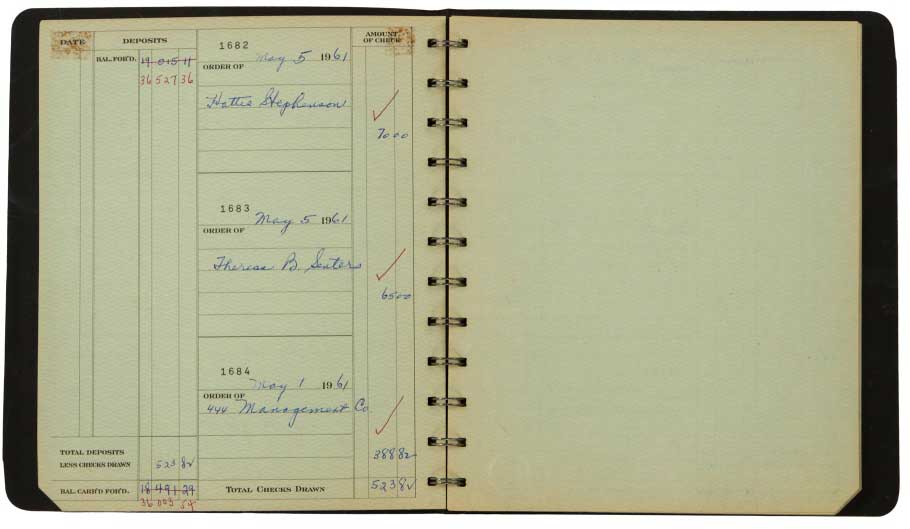 DATE DEPOSITS AMOUNT OF CHECK
BAL. FOR'D. 19 015 11
36 527 36
1682
May 5 1961
ORDER OF
Hattie Stephenson
70 00
1683
May 5 1961
ORDER OF
Theresa B.
65 00
1684
May 1 1961
ORDER OF
444 Management Co
388 82
TOTAL DEPOSITS
LESS CHECKS DRAWN 523 82
BAL. CARR'D FOR'D. 18 491 29
36 003 54
TOTAL CHECKS DRAWN 523 82